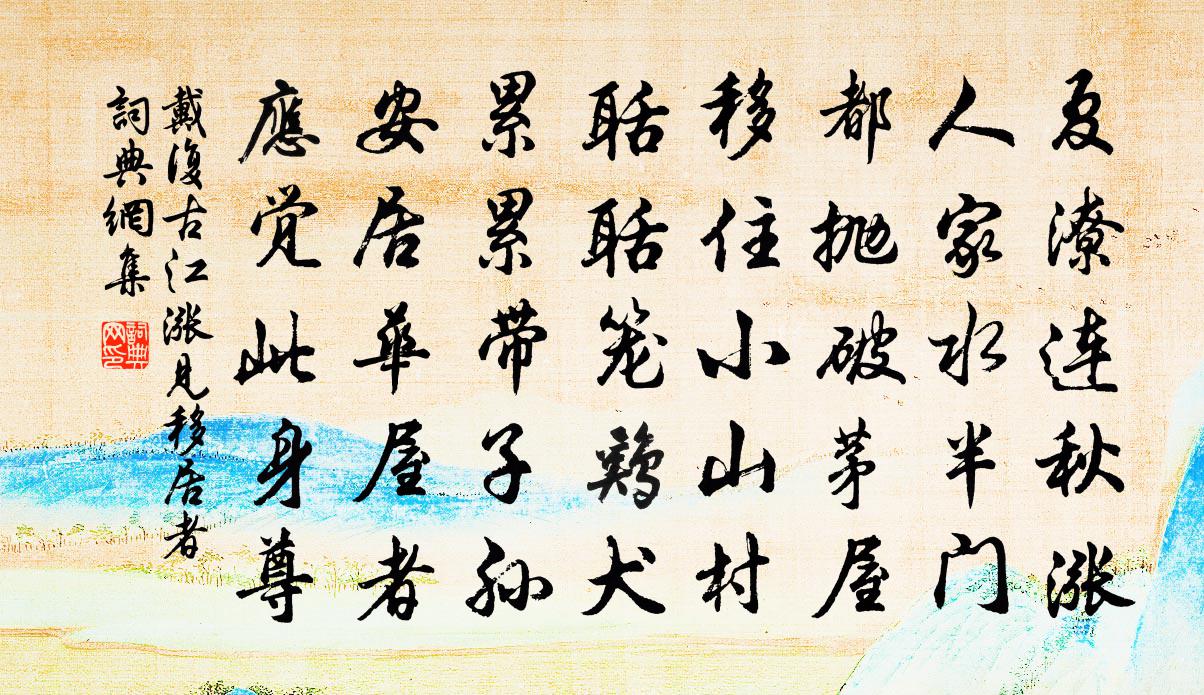 夏潦连秋涨
人家水半门
都抛破茅屋
移住小山村
聒聒笼鷄犬
累累带子孫
安居華屋者
應觉此身尊
戴復古江漲見移居者
詞典網集
詞典网印